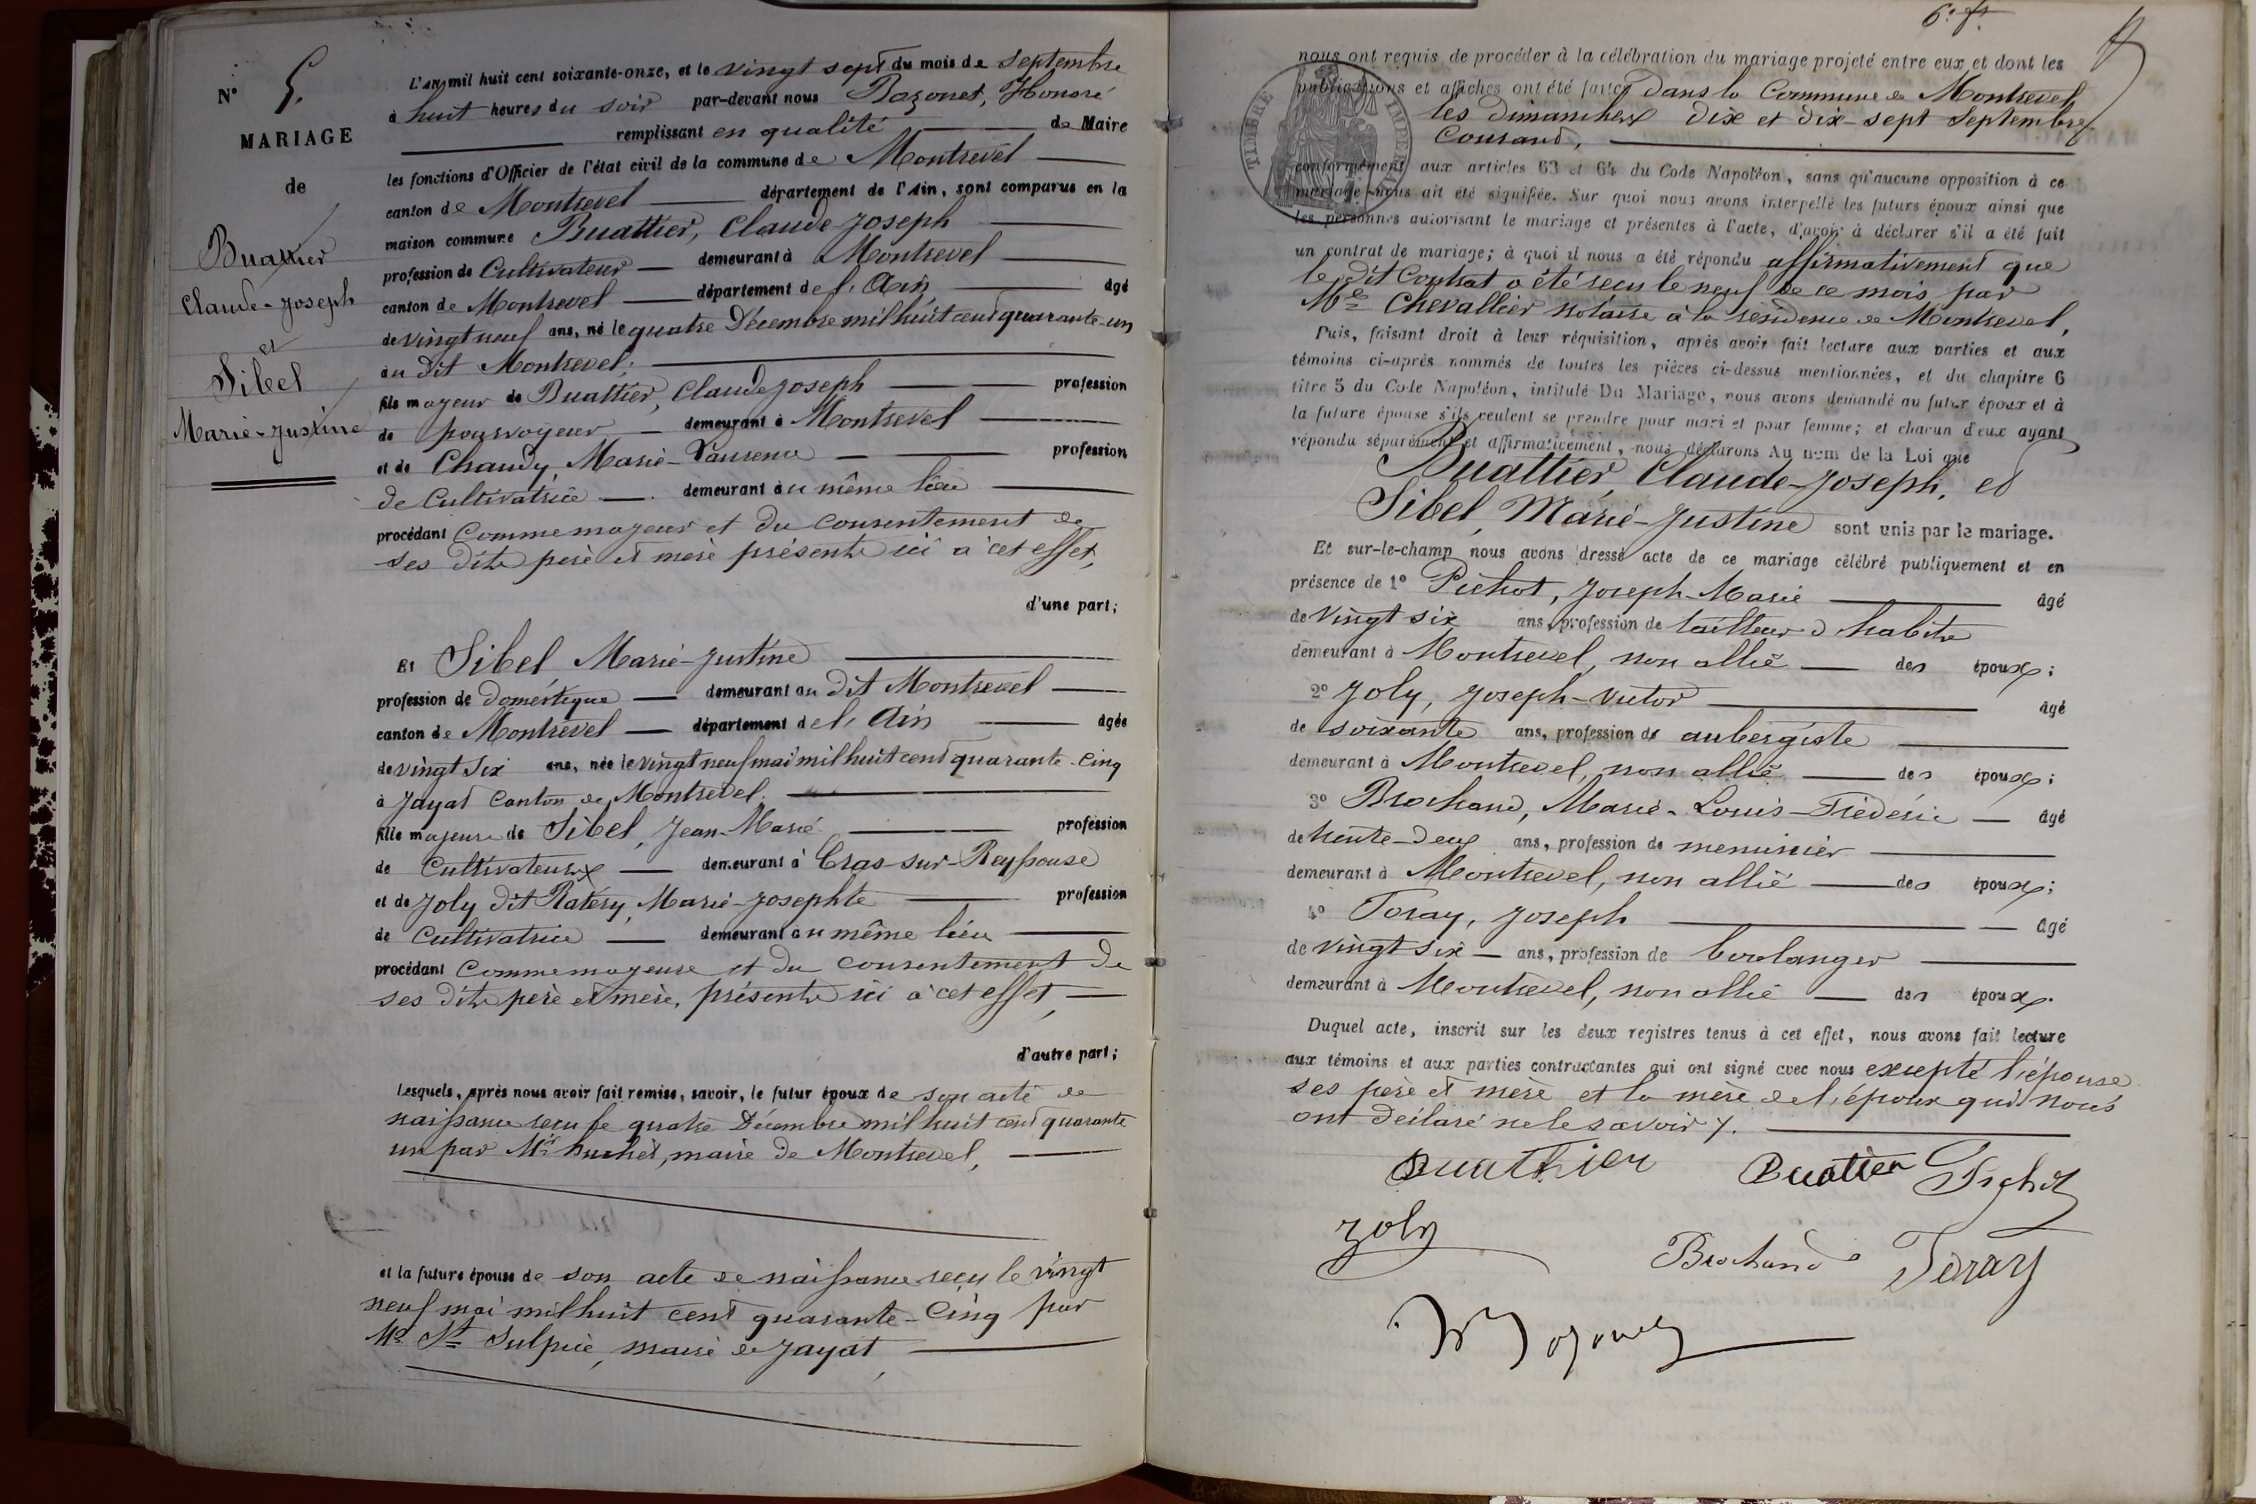 N° 5.
MARIAGE
de
Buattier
Claude-Joseph
et
Sibel
Marie-Justine
L'AN mil huit cent soixante-onze, et le vingt sept du mois de Septembre
à huit heures du soir par-devant nous Bazonet, Honoré
remplissant en qualité de Maire
les fonctions d'Officier de l'état civil de la commune de Montrevel
canton de Montrevel département de l'Ain, sont comparus en la
maison commune Buattier, Claude Joseph
profession de Cultivateur demeurant à Montrevel
canton de Montrevel département de l'Ain âgé
de vingt neuf ans, né le quatre Décembre mil huit cent quarante-un
au dit Montrevel;
fils majeur de Buattier, Claude Joseph profession
de pourvoyeur demeurant à Montrevel
et de Chaudy, Marie-Laurence profession
de Cultivatrice demeurant au même lieu
procédant comme majeur et du consentement de
ses dits père et mère présents ici à cet effet,
d'une part;
Et Sibel Marie-Justine
profession de doméstique demeurant au dit Montrevel
canton de Montrevel département de l'Ain âgée
de vingt six ans, née le vingt neuf mai mil huit cent quarante-cinq
à Jayat canton de Montrevel.
fille majeure de Sibel, Jean-Marie profession
de Cultivateur demeurant à Cras-sur-Reyssouse
et de Joly dit Ratéry, Marie-Josephte profession
de Cultivatrice demeurant au même lieu
procédant comme majeure et du consentement de
ses dits père et mère, présents ici à cet effet,
d'autre part;
Lesquels, après nous avoir fait remise, savoir, le futur époux de son acte de
naissance reçu le quatre Décembre mil huit cent quarante
un par Mr Buchet, maire de Montrevel,
et la future épouse de son acte de naissance reçu le vingt
neuf mai mil huit cent quarante-cinq par
Mr St Sulpice, maire de Jayat,
nous ont requis de procéder à la célébration du mariage projeté entre eux et dont les
publications et affiches ont été faites dans la Commune de Montrevel
les dimanches dix et dix-sept Septembre
Courant,
TIMBRE IMPERIAL
conformément aux articles 63 et 64 du Code Napoléon, sans qu'aucune opposition à ce
mariage nous ait été signifiée. Sur quoi nous avons interpellé les futurs époux ainsi que
les personnes autorisant le mariage et présentes à l'acte, d'avoir à déclarer s'il a été fait
un contrat de mariage; à quoi il nous a été répondu affirmativement que
le dit Contrat a été reçu le neuf de ce mois par
Me Chevallier notaire à la résidence de Montrevel,
Puis, faisant droit à leur réquisition, après avoir fait lecture aux parties et aux
témoins ci-après nommés de toutes les pièces ci-dessus mentionnées, et du chapitre 6
titre 5 du Code Napoléon, intitulé Du Mariage, nous avons demandé au futur époux et à
la future épouse s'ils veulent se prendre pour mari et pour femme; et chacun d'eux ayant
répondu séparément et affirmativement, nous déclarons Au nom de la Loi que
Buattier, Claude-Joseph, et
Sibel, Marie-Justine sont unis par le mariage.
Et sur-le-champ nous avons dressé acte de ce mariage célébré publiquement et en
présence de 1° Pichot, Joseph-Marie âgé
de vingt six ans, profession de tailleur d'habits
demeurant à Montrevel, non allié des époux;
2° Joly, Joseph-Victor âgé
de soixante ans, profession de aubergiste
demeurant à Montrevel, non allié des époux;
3° Brochand, Marie-Louis-Frédéric âgé
de trente-deux ans, profession de menuisier
demeurant à Montrevel, non allié des époux;
4° Toray, Joseph âgé
de vingt six ans, profession de boulanger
demeurant à Montrevel, non allié des époux.
Duquel acte, inscrit sur les deux registres tenus à cet effet, nous avons fait lecture
aux témoins et aux parties contractantes qui ont signé avec nous excepté l'épouse
ses père et mère et la mère de l'époux qui nous
ont déclaré ne le savoir.
Buathier Buattier Pichot
Joly
Brochand Toray